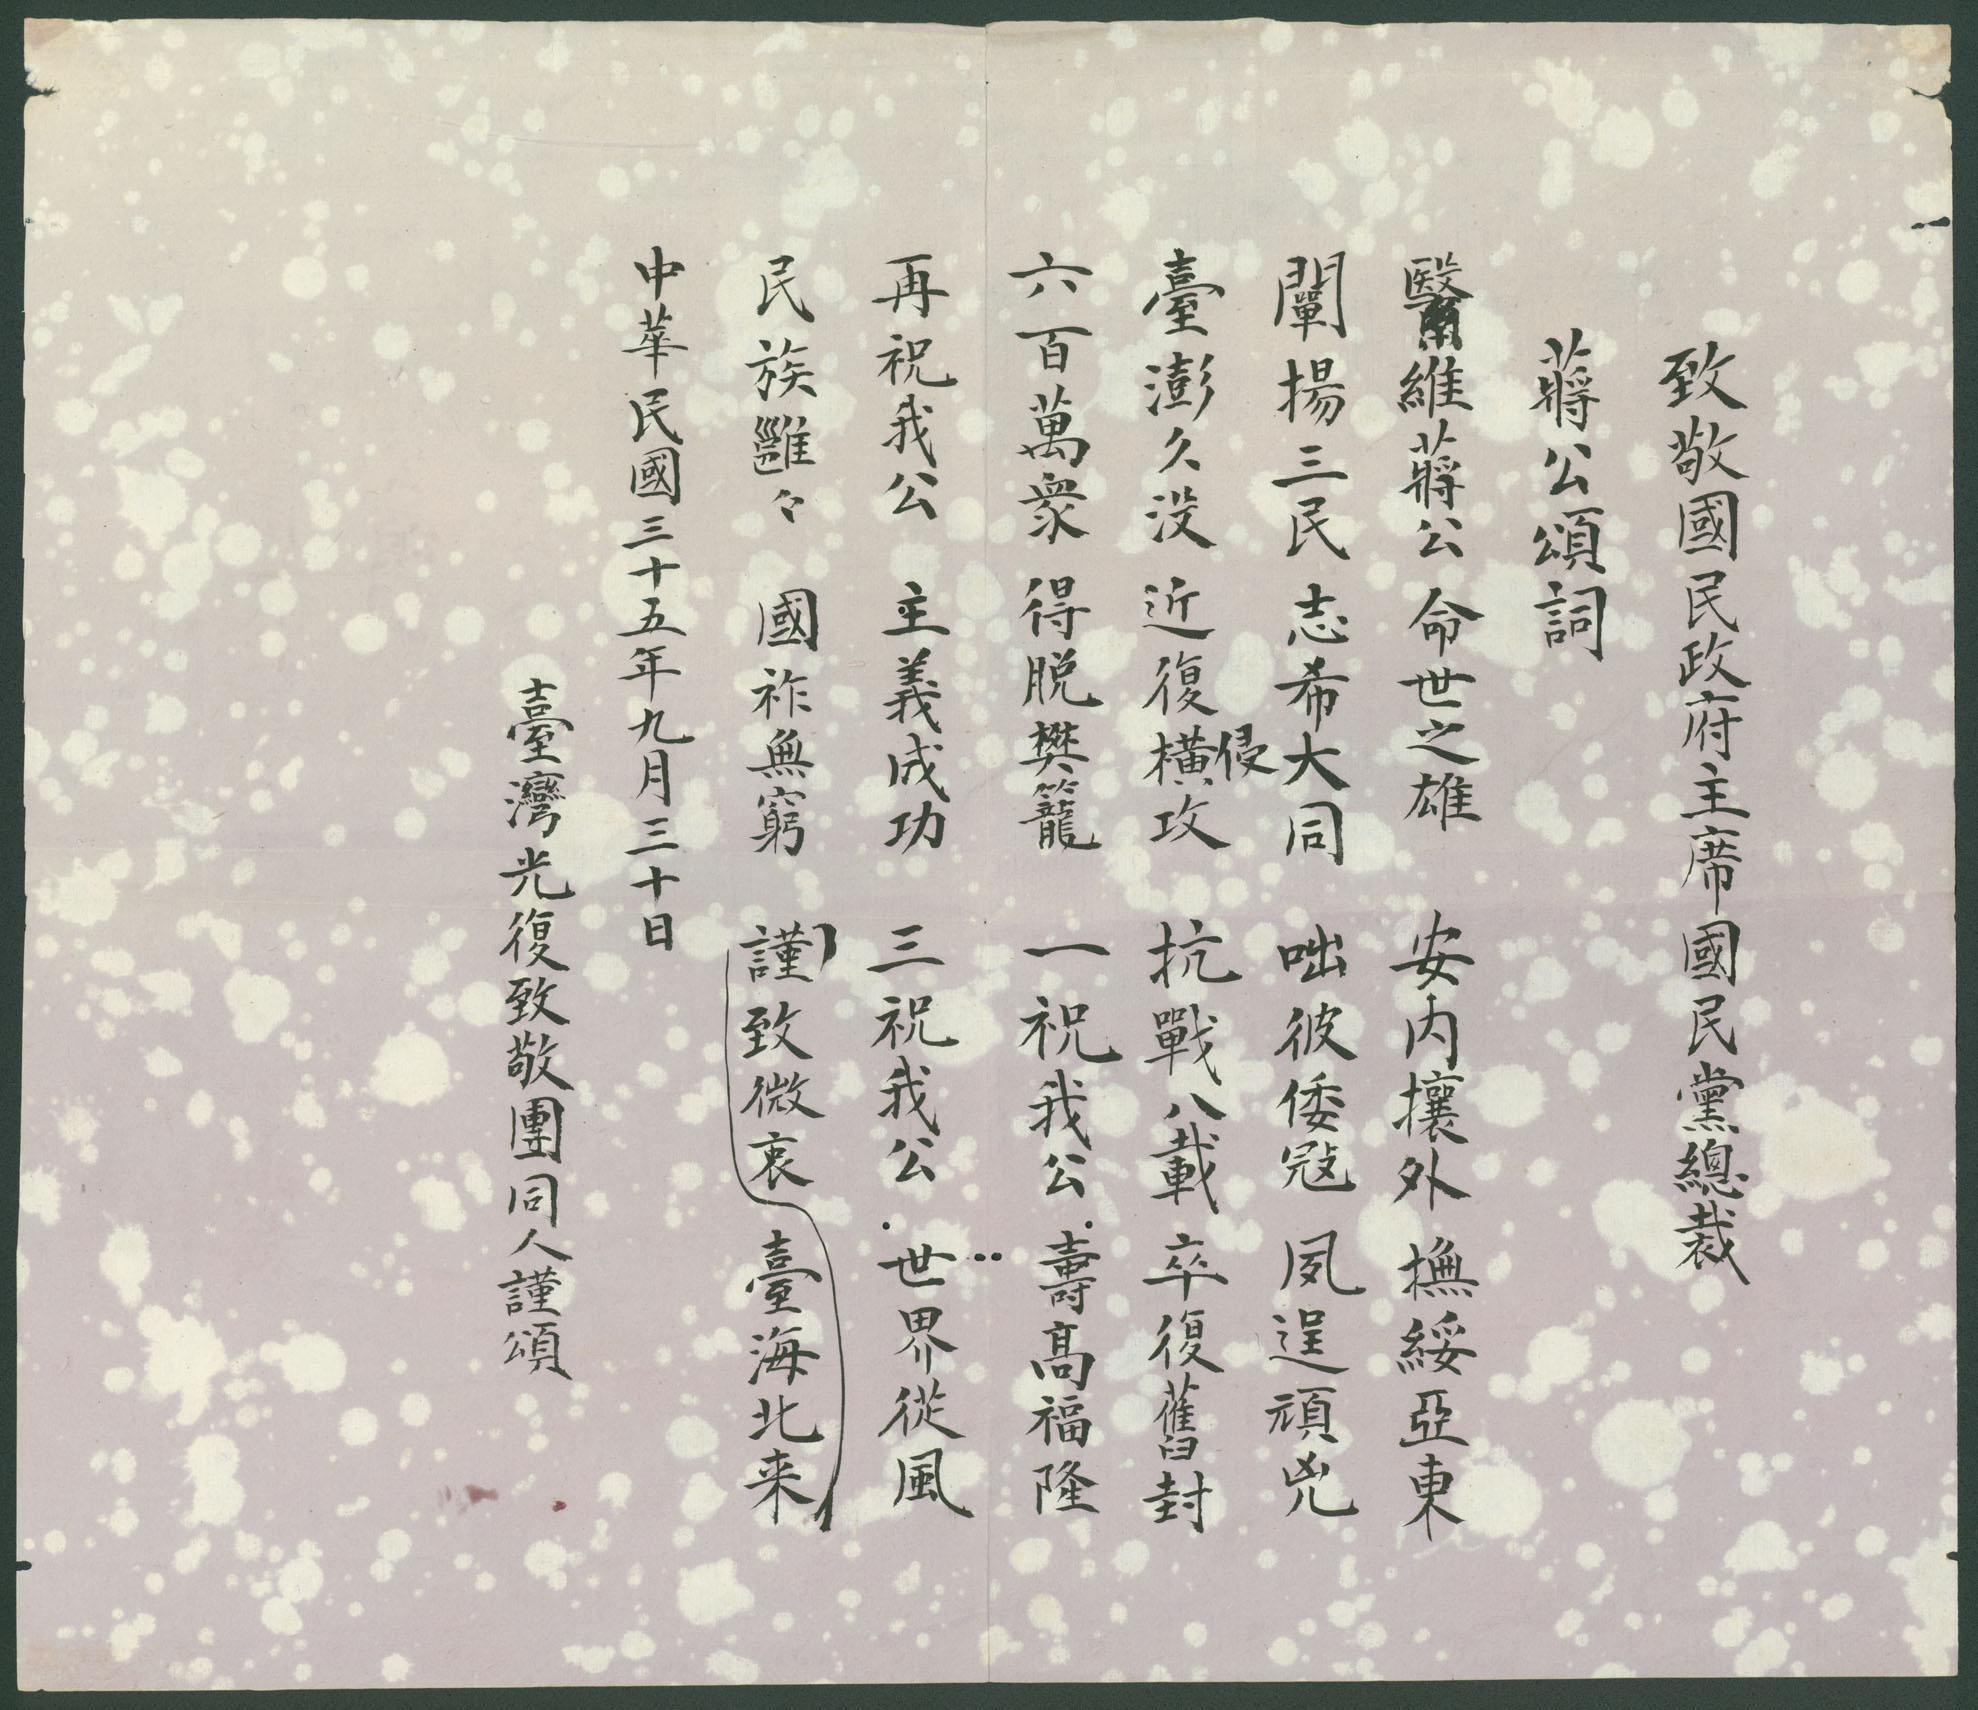 致敬國民政府主席國民黨總裁
蔣公頌詞
緊維蔣公 命世之雄 安內攘外 撫綏亞東
闡揚三民 志希大同 咄彼倭寇 夙逞頑兇
臺澎久没 近復橫侵攻 抗戰八載 卒復舊封
六百萬衆 得脱樊籠 一祝我公 壽高福隆
再祝我公 主義成功 三祝我公 世界從風
民族雝々 國祚無窮 謹致微衷 臺海北来
中華民國三十五年九月三十日
臺灣光復致敬團同人謹頌